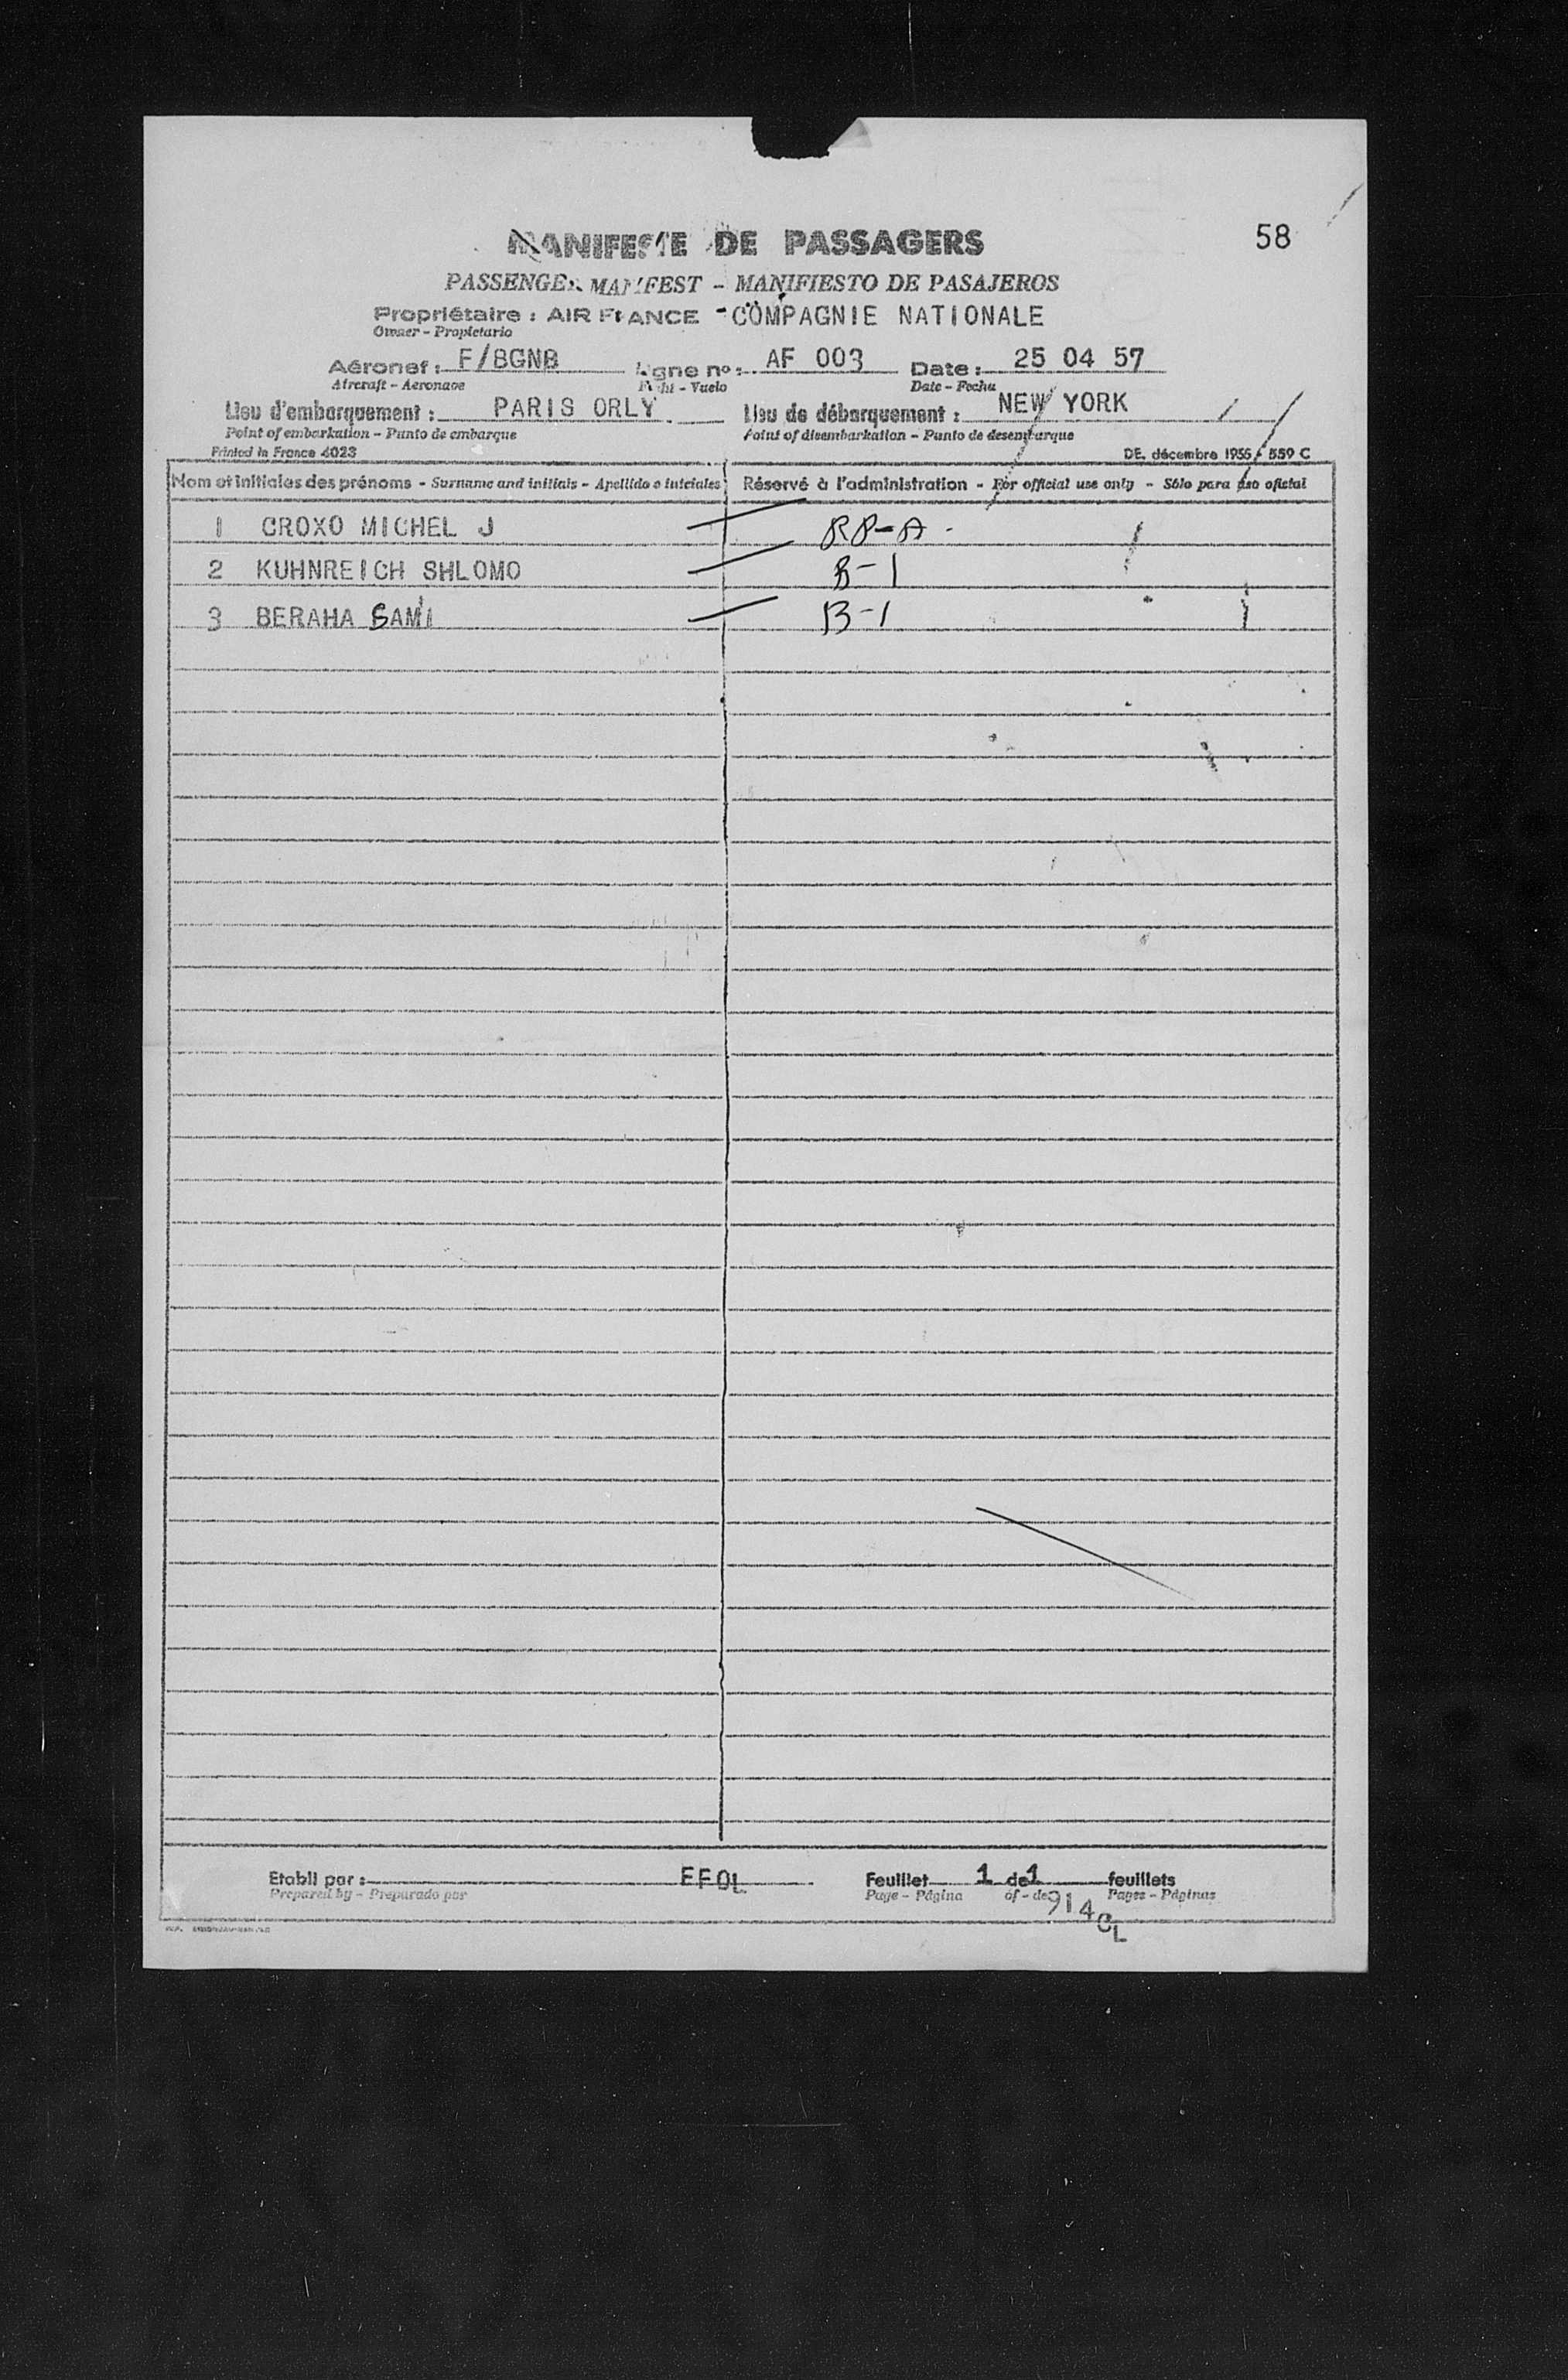 58
MANIFESTE DE PASSAGERS
PASSENGER MANIFEST - MANIFIESTO DE PASAJEROS
Propriétaire : AIR FRANCE - COMPAGNIE NATIONALE
Owner - Propietario
Aéronef : F/BGNB Ligne nº : AF 003 Date : 25 04 57
Aircraft - Aeronave Flight - Vuelo Date - Fecha
Lieu d'embarquement : PARIS ORLY Lieu de débarquement : NEW YORK
Point of embarkation - Punto de embarque Point of disembarkation - Punto de desembarque
Printed in France 4023 DE. décembre 1955 - 559 C
Nom et initiales des prénoms - Surname and initials - Apellido e iniciales Réservé à l'administration - For official use only - Sólo para uso oficial
1 CROXO MICHEL J RP-A
2 KUHNREICH SHLOMO B-1
3 BERAHA SAMI B-1
Etabli par : EFOL Feuillet 1 de 1 feuillets
Prepared by - Preparado por Page - Página of - de Pages - Páginas
914CL